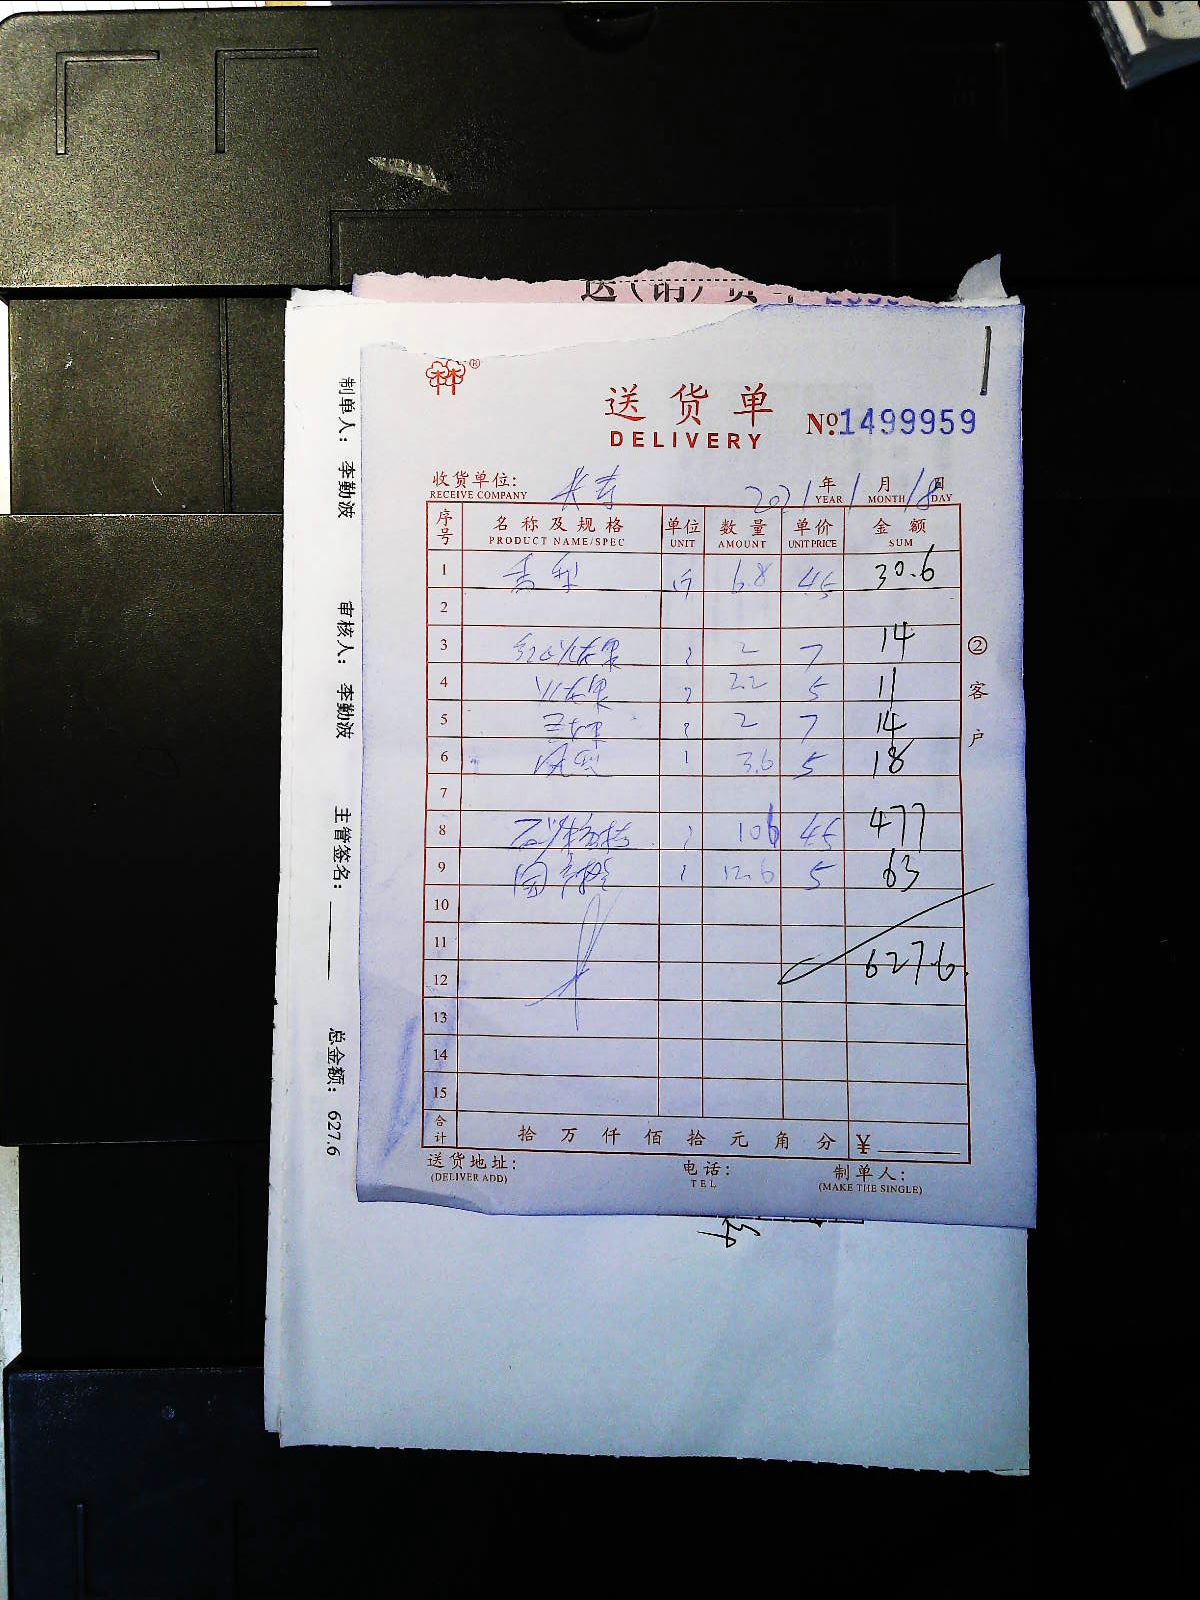 送(销)货单
®
送货单
DELIVERY
№1499959
收货单位:
RECEIVE COMPANY
2021年1月18日
YEAR MONTH DAY
序号 名称及规格 单位 数量 单价 金额
PRODUCT NAME/SPEC UNIT AMOUNT UNIT PRICE SUM
1 香梨 斤 6.8 4.5 30.6
2
3 2 7 14
4 2.2 5 11
5 2 7 14
6 3.6 5 18
7
8 106 4.5 477
9 12.6 5 63
10
11
627.6
12
13
14
15
合计 拾万仟佰拾元角分 ¥
送货地址: 电话: 制单人:
(DELIVER ADD) TEL (MAKE THE SINGLE)
②客户
制单人: 李勤波 审核人: 李勤波 主管签名: 总金额: 627.6